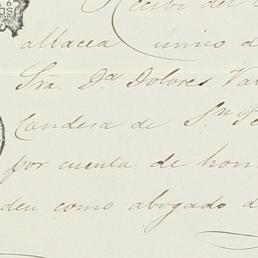 Recibi del
albacea único d
Sra. Da. Dolores Va
Condesa de Sn. Pe
por cuenta de hon
den como abogado d